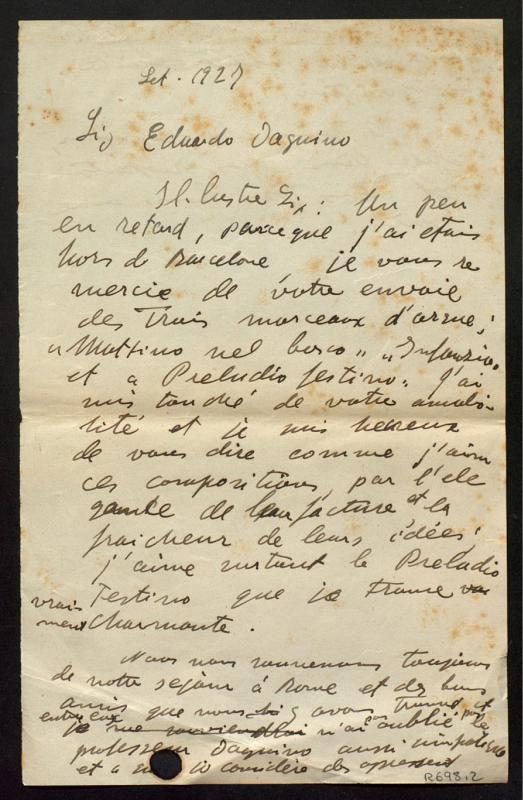 Set. 1927
Sig Eduardo Dagnino
Il.lustre Sig: Un peu
en retard, parceque j'ai etais
hors de Barcelone je vous re
mercie de votre envoie
des trois morceaux d'orgue;
"Mattino nel bosco"
et "Preludio festino". J'ai
suis touché de votre amabi-
lité et je suis hereux
de vous dire comme j'aime
ces compositions, par l'ele
gance de leur facture et la
fraicheur de leurs idées
j'aime surtout le Preludio
Festino que je trouve
vrai
ment charmante.
Nous nous souvenons toujours
de notre sejour à Rome et des bons
amis que nous y avons trouvé et
entre eux je n'ai pas oublié pas le
professeur Dagnino aussi simpatique
et a
R698,2